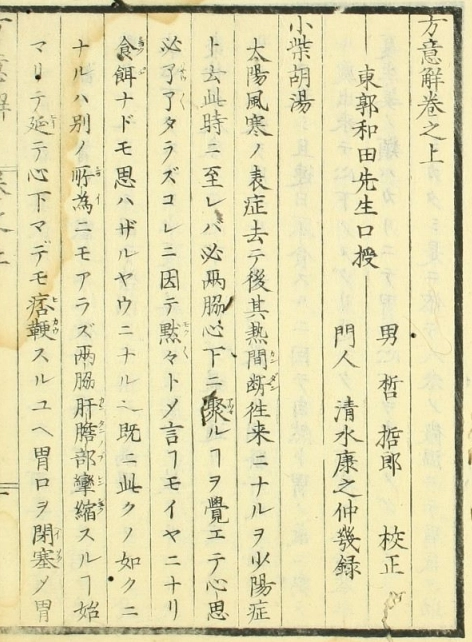 方意解卷之上
東郭和田先生口授
男 哲 哲郎 校正
門人 清水康之仲㡬録
小柴胡湯
太陽風寒ノ表症去テ後其熱間断徃来ニナルヲ少陽症
ト去此時ニ至レバ必兩脇心下ニ聚ルヿヲ覺エテ心思
必了了タラズコレニ因テ默々トメ言フモイヤニナリ
食餌ナドモ思ハザルヤウニナル也既ニ此クノ如クニ
ナルハ別ノ所為ニモアラズ兩脇肝膽部攣縮スルヿ始
マリテ延テ心下マデモ痞鞕スルユヘ胃口ヲ閉塞メ胃